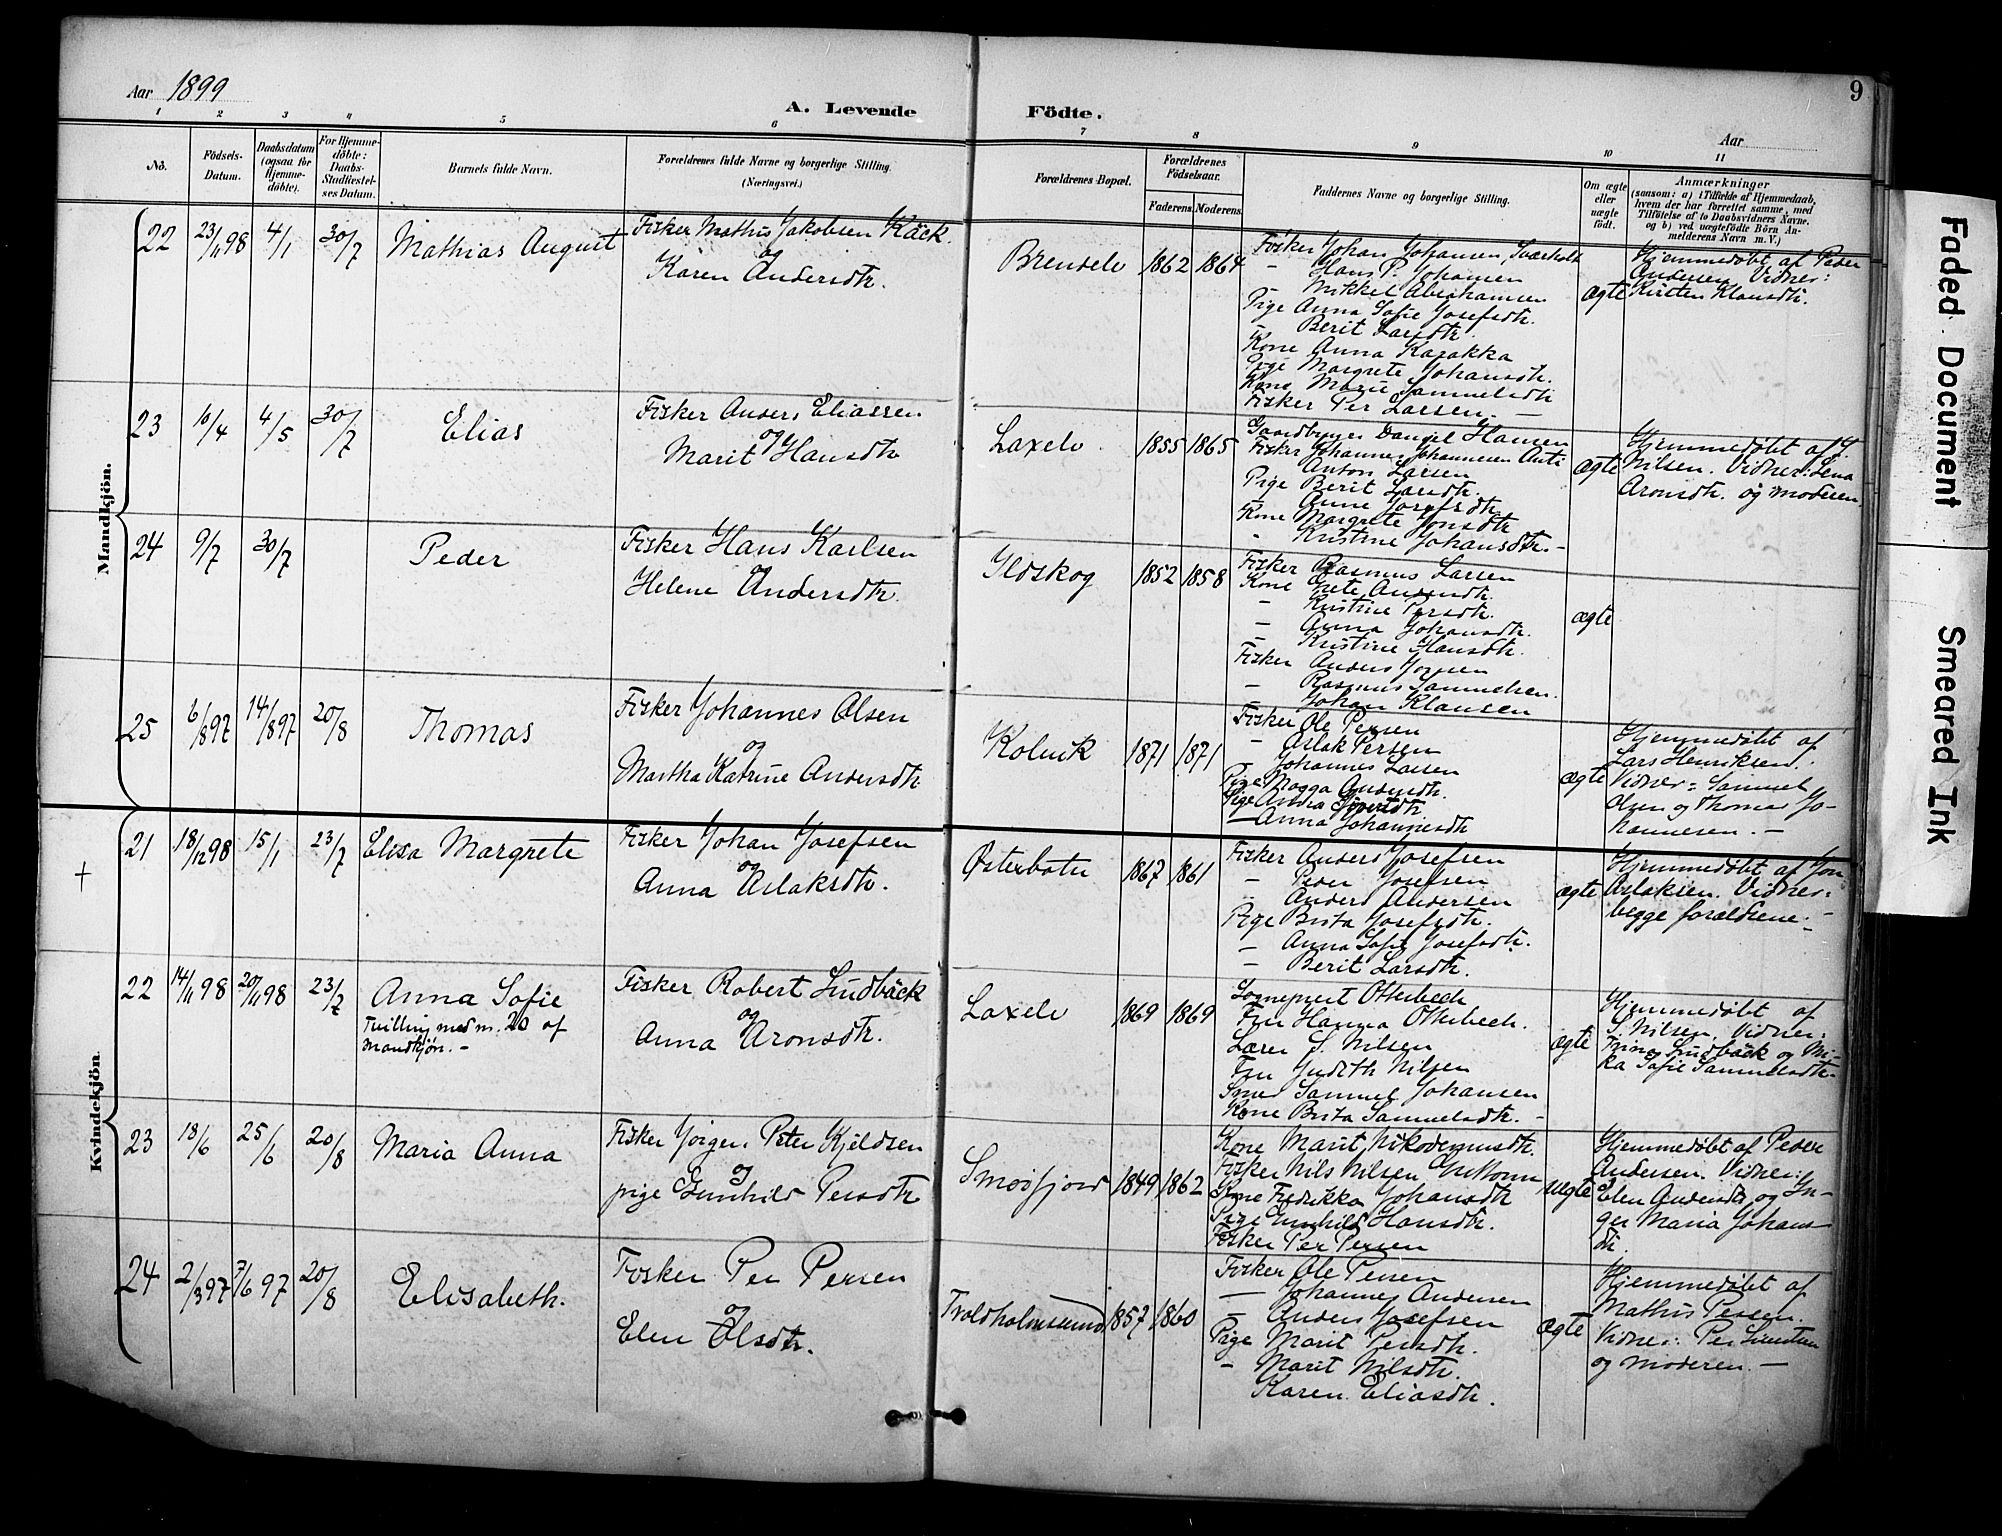 Aar 1899
A. Levende Födte.
9
Aar
1 2 3 4 5 6 7 8 9 10 11
No. Födsels-Datum. Daabsdatum (ogsaa for Hjemme-döbte). For Hjemme-döbte: Daabs-Stadfæstel-ses Datum. Barnets fulde Navn. Forældrenes fulde Navne og borgerlige Stilling. (Næringsvei.) Forældrenes Bopæl. Forældrenes Födselsaar. Faderens. Moderens. Faddernes Navne og borgerlige Stilling. Om ægte eller uægte födt. Anmærkninger (saasom: a) i Tilfælde af Hjemmedaab, hvem der har forrettet samme, med Tilföielse af to Daabsvidners Navne. og b) ved uægtefödte Börn An-melderens Navn m. V.)
Mandkjön.
22 23/11 98 4/1 30/7 Mathias August
Fisker Mathis Jakobsen Käck.
og
Karen Andersdtr.
Brenelv 1862 1864
Fisker Johan Johansen, Svartholt
- Hans P. Johansen
- Mikkel Abrahamsen
Pige Anna Sofie Josefsdtr.
Berit Larsdtr.
Kone Anna Karakka
Pige Margrete Johansdtr.
Kone Marie Sammelsdtr
Fisker Per Larsen. -
ægte
Hjemmedøbt af Peder
Andersen Vidner:
Kirsten Klausdtr.
23 10/4 4/5 30/7 Elias
Fisker Anders Eliassen
og
Marit Hansdtr
Laxelv 1855 1865
Gaardbruger Daniel Hansen
Fisker Johannes Johannesen Anti
Anton Larsen
Pige Berit Larsdtr.
Anne Josefsdtr
Kone Margrete Jonsdtr
" Kristine Johansdtr. -
ægte
Hjemmedøbt af J.
Nilsen. Vidner: Lena
Aronsdtr. og moderen
24 9/7 30/7 Peder
Fisker Hans Karlsen
og
Helene Andersdtr.
Ildskog 1852 1858
Fisker Rasmus Larsen
Kone Grete Andersdtr.
- Kristine Persdtr.
- Anna Johansdtr.
- Kristine Hansdtr.
Fisker Anders
- Rasmus Sammelsen.
Johan Klausen
ægte
25 6/8 97 14/8 97 20/8 Thomas
Fisker Johannes Olsen
og
Martha Katrine Andersdtr
Kolvik 1871 1871
Fisker Ole Persen
- Aslak Persen
Johannes Larsen
Pige Magga Andersdtr.
Pige Anna Sivertsdtr
- Anna Johannesdtr
ægte
Hjemmedøbt af
Lars Henriksen.
Vidner: Sammel
Olsen og Thomas Jo-
hannesen. -
Kvindekjön.
+ 21 18/12 98 15/1 23/7 Elisa Margrete
Fisker Johan Josefsen
og
Anna Aslaksdtr.
Østerbotn 1867 1861
Fisker Anders Josefsen
- Peder Josefsen
- Anders Andersen
Pige Brita Josefsdtr.
- Anna Sofie Josefsdtr.
- Berit Larsdtr.
ægte
Hjemmedøbt af Jon
Aslaksen. Vidner:
begge forældrene. -
22 14/11 98 20/11 98 23/7 Anna Sofie
Tvilling med nr. 20 af
Mandkjøn. -
Fisker Robert Lindbäck
og
Anna Aronsdtr.
Laxelv 1869 1869
Sogneprest Otterbech
Fru Hanna Otterbech.
Lærer S. Nilsen
Fru Judith Nilsen
Smed Sammel Johansen
Kone Brita Sammelsdtr. -
ægte
Hjemmedøbt af
S. Nilsen. Vidner:
Trine Lindbäck og Mi-
ka Sofie Sammelsdtr. -
23 18/6 25/6 20/8 Maria Anna
Fisker Jörgen Peter Kjeldsen
og
pige Gunhild Persdtr
Smørfjord 1849 1862
Kone Marit Nikodemusdtr.
Fisker Nils Nilsen
Kone Fredrikka Johansdtr
Pige Gunhild Hansdtr.
Fisker Per Persen
uægte
Hjemmedøbt af Peder
Andersen. Vidner:
Elen Andersdtr og In-
ger Maria Johans-
dtr.
24 2/3 97 7/6 97 20/8 Elisabeth.
Fisker Per Persen
og
Elen Olsdtr.
Troldholmsund 1857 1860
Fisker Ole Persen
- Johannes Andersen
- Anders Josefsen
Pige Marit Persdtr.
- Marit Nilsdtr.
Karen Eliasdtr.
ægte
Hjemmedøbt af
Mathis Persen.
Vidner: Per
og moderen. -
Faded Document
Smeared Ink